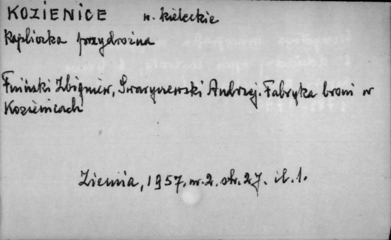 KOZIENICE w. kieleckie
Kapliczka przydrożna
Zbigniew, Swaryczewski Andrzej. Fabryka broni w
Kozienicach
Ziemia, 1957. nr. 2. str. 27. il. 1.